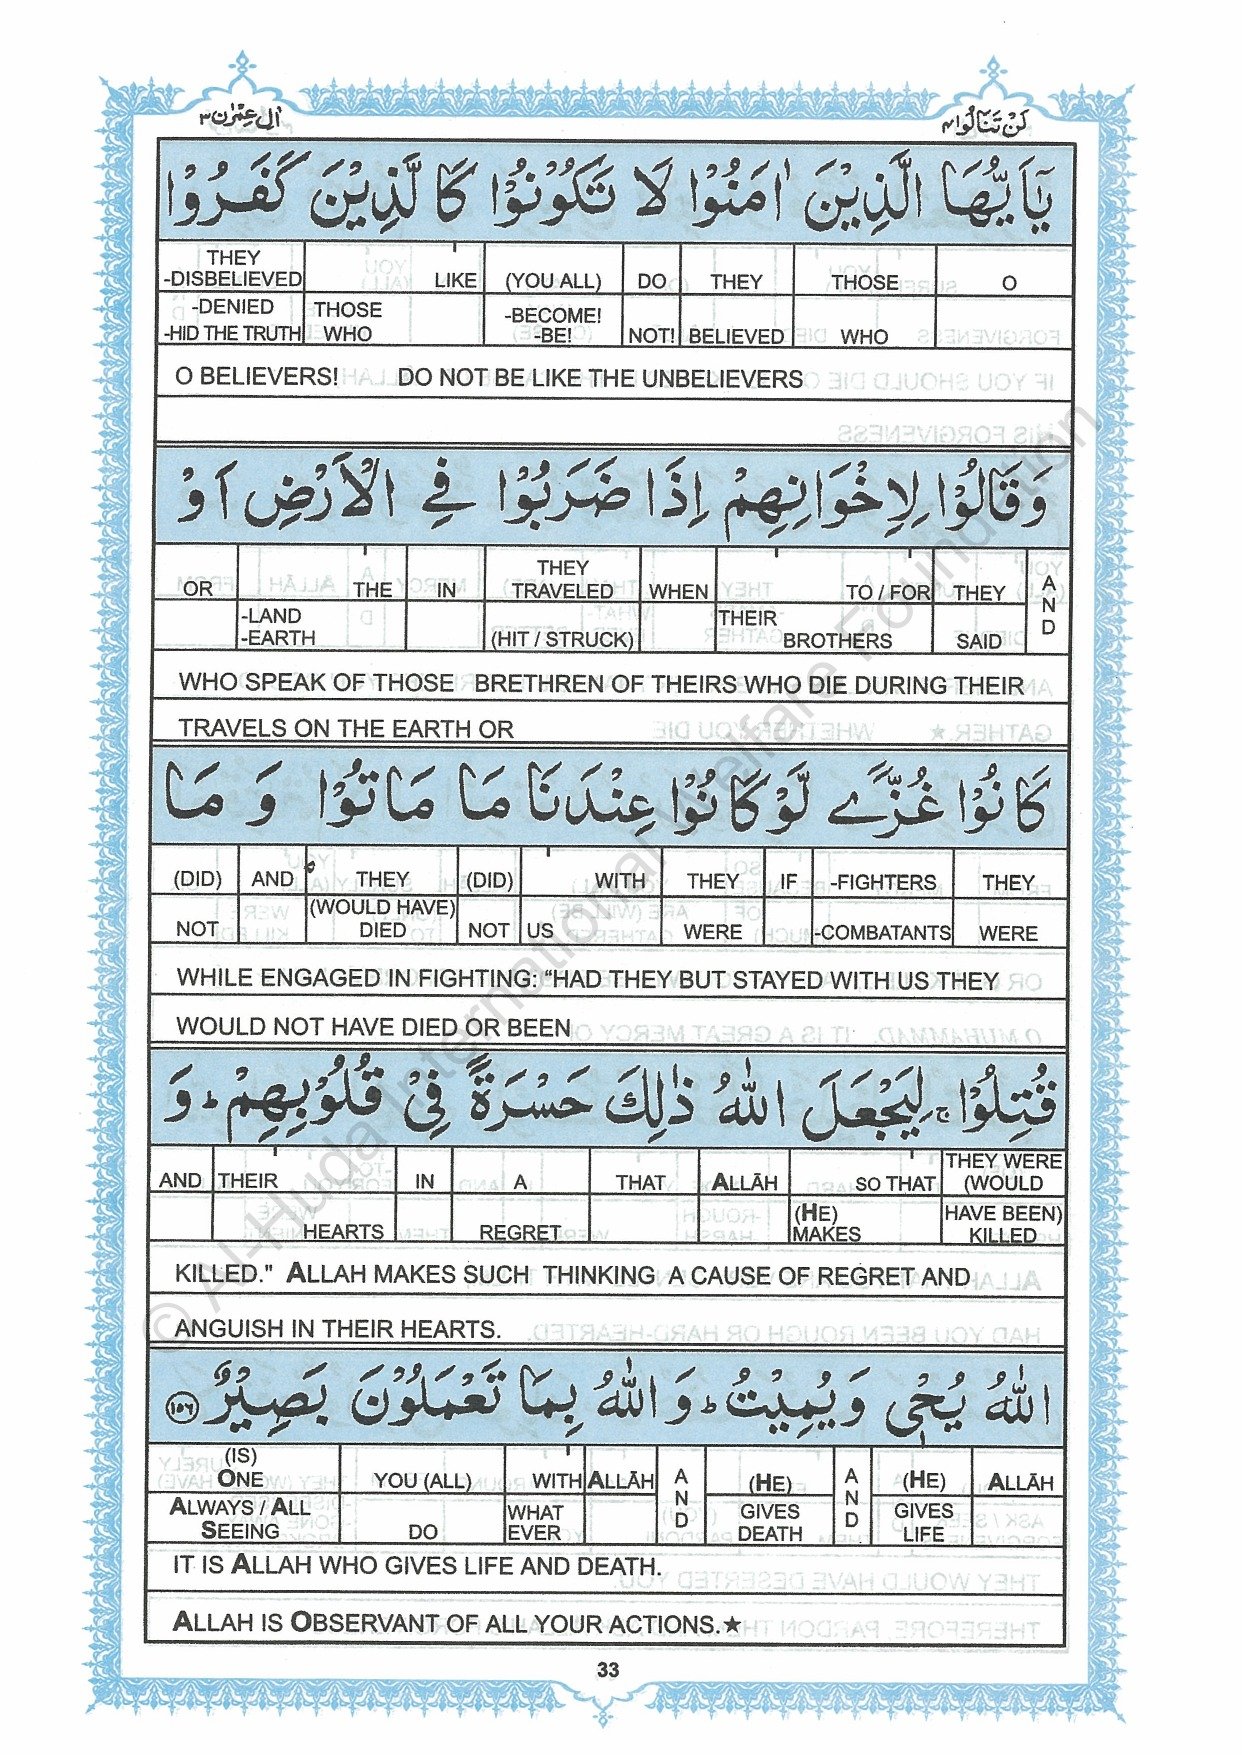 لَنْ تَنَالُوا۴
اٰلِ عِمْرٰن۳
يٰۤاَيُّهَا الَّذِيْنَ اٰمَنُوْا لَا تَكُوْنُوْا كَالَّذِيْنَ كَفَرُوْا
THEY -DISBELIEVED | LIKE | (YOU ALL) | DO | THEY | THOSE | O
-DENIED -HID THE TRUTH | THOSE WHO | -BECOME! -BE! | NOT! | BELIEVED | WHO
O BELIEVERS! DO NOT BE LIKE THE UNBELIEVERS
وَقَالُوْا لِاِخْوَانِهِمْ اِذَا ضَرَبُوْا فِي الْاَرْضِ اَوْ
OR | THE | IN | THEY TRAVELED | WHEN | TO / FOR | THEY | AND
-LAND -EARTH | (HIT / STRUCK) | THEIR BROTHERS | SAID
WHO SPEAK OF THOSE BRETHREN OF THEIRS WHO DIE DURING THEIR
TRAVELS ON THE EARTH OR
كَانُوْا غُزًّے لَّوْكَانُوْا عِنْدَنَا مَا مَاتُوْا وَمَا
(DID) | AND | THEY | (DID) | WITH | THEY | IF | -FIGHTERS | THEY
NOT | (WOULD HAVE) DIED | NOT | US | WERE | -COMBATANTS | WERE
WHILE ENGAGED IN FIGHTING: “HAD THEY BUT STAYED WITH US THEY
WOULD NOT HAVE DIED OR BEEN
قُتِلُوْا ۚ لِيَجْعَلَ اللّٰهُ ذٰلِكَ حَسْرَةً فِيْ قُلُوْبِهِمْ ؕ وَ
AND | THEIR | IN | A | THAT | ALLĀH | SO THAT | THEY WERE (WOULD
HEARTS | REGRET | (HE) MAKES | HAVE BEEN) KILLED
KILLED." ALLAH MAKES SUCH THINKING A CAUSE OF REGRET AND
ANGUISH IN THEIR HEARTS.
اللّٰهُ يُحْيٖ وَيُمِيْتُ ؕ وَاللّٰهُ بِمَا تَعْمَلُوْنَ بَصِيْرٌ ۝۱۵۶
(IS) ONE | YOU (ALL) | WITH | ALLĀH | AND | (HE) | AND | (HE) | ALLĀH
ALWAYS / ALL SEEING | DO | WHAT EVER | GIVES DEATH | GIVES LIFE
IT IS ALLAH WHO GIVES LIFE AND DEATH.
ALLAH IS OBSERVANT OF ALL YOUR ACTIONS.★
33
© Al-Huda International Welfare Foundation